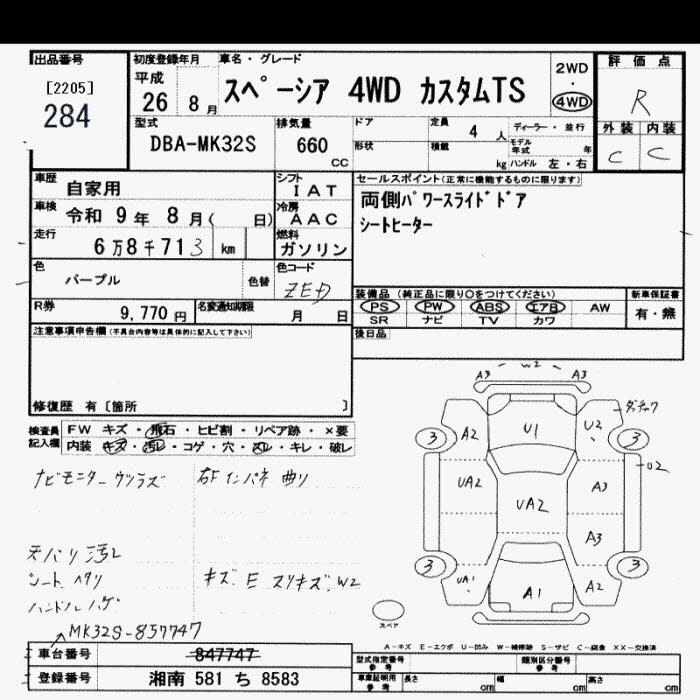 出品番号
[2205]
284
初度登録年月
平成
26 8 月
車名・グレード
スペーシア 4WD カスタムTS
2WD
・
4WD
評価点
R
外装 内装
C C
型式
DBA-MK32S
排気量
660
CC
ドア
形状
定員
4 人
積載
kg
ディーラー・並行
モデル年式 年
ハンドル 左・右
車歴
自家用
車検
令和 9年 8月( 日)
走行
6万8千713 km
シフト
IAT
冷房
AAC
燃料
ガソリン
セールスポイント(正常に機能するものに限ります)
両側パワースライドドア
シートヒーター
色
パープル
色替
色コード
ZED
R券
9,770 円
名変通知期限
月 日
装備品 (純正品に限り○をつけてください)
PS PW ABS エアB AW
SR ナビ TV カワ
新車保証書
有・無
後日品
注意事項申告欄(不具合内容等は具体的に記入して下さい)
修復歴 有〔箇所 〕
検査員記入欄
FW キズ・飛石・ヒビ割・リペア跡・×要
内装 キズ・汚レ・コゲ・穴・スレ・キレ・破レ
ナビモニターウツラズ
右Fインパネ曲リ
天バリ汚レ
シートヘタリ
ハンドルハゲ
キズ、E スリキズ、W2
MK32S-857747
A3 W2 A3
A2 U1 U2
3 3
UA2 UA2 A3
U2
A3
3 3
UA1 A1 A2
スペア
A-キズ E-エクボ U-凹み W-補修跡 S-サビ C-腐食 XX-交換済
車台番号
847747
登録番号
湘南 581 ち 8583
型式指定番号
参考
類別区分番号
参考
車庫証明用
参考
長さ cm 幅 cm 高さ cm